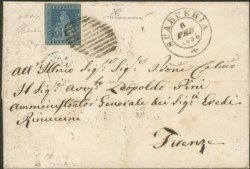 SCARPERIA
8
FEB
All' Illmo Sigr. Sigr. Prone Colmo
Il Sigr. Avvto. Leopoldo Pini
Amministrator Generale dei Sigri. Eredi
Rinuccini
Firenze